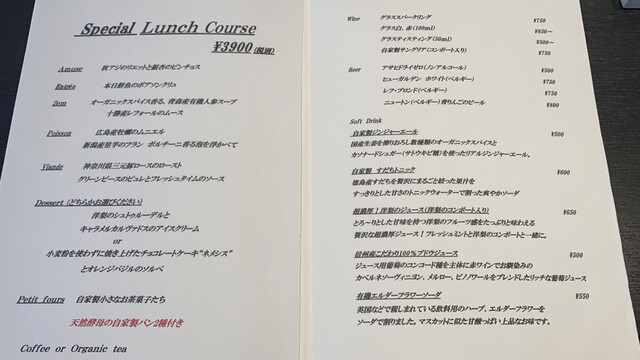 Special Lunch Course
¥3900(税別)
Amuse 秋アジのリエットと銀杏のピンチョス
Entrée 本日鮮魚のポアソンクリュ
2em オーガニックスパイス香る、青森産有機人参スープ
十勝産レフォールのムース
Poisson 広島産牡蠣のムニエル
新潟産里芋のフラン ポルチーニ香る泡を浮かべて
Viande 神奈川県三元豚ロースのロースト
グリーンピースのピュレとフレッシュタイムのソース
Dessert (どちらかお選びください)
洋梨のシュトゥルーデルと
キャラメルカルヴァドスのアイスクリーム
or
小麦粉を使わずに焼き上げたチョコレートケーキ“ネメシス”
とオレンジバジルのソルベ
Petit fours 自家製小さなお茶菓子たち
天然酵母の自家製パン2種付き
Coffee or Organic tea
Wine グラススパークリング ¥750
グラス白、赤(100ml) ¥850～
グラスティスティング(50ml) ¥500～
自家製サングリア(コンポート入り) ¥750
Beer アサヒドライゼロ(ノンアルコール) ¥500
ヒューガルデン ホワイト(ベルギー) ¥750
レフ・ブロンド(ベルギー) ¥750
ニュートン(ベルギー)青りんごのビール ¥800
Soft Drink
自家製ジンジャーエール ¥500
国産生姜を擦りおろし数種類のオーガニックスパイスと
カソナードシュガー(サトウキビ糖)を使ったリアルジンジャーエール。
自家製 すだちトニック ¥600
徳島産すだちを贅沢にまるごと絞った果汁を
すっきりとした甘さのトニックウォーターで割った爽やかソーダ
超濃厚!洋梨のジュース(洋梨のコンポート入り) ¥650
とろ～りとした甘味を持つ洋梨のフルーツ感をたっぷりと味わえる
贅沢な超濃厚ジュース!フレッシュミントと洋梨のコンポートと一緒に。
信州産こだわり100%ブドウジュース ¥500
ジュース用葡萄のコンコード種を主体に赤ワインでお馴染みの
カベルネソーヴィニヨン、メルロー、ピノノワールをブレンドしたリッチな葡萄ジュース
有機エルダーフラワーソーダ ¥550
英国などで親しまれている飲料用のハーブ、エルダーフラワーを
ソーダで割りました。マスカットに似た甘酸っぱい上品なお味です。